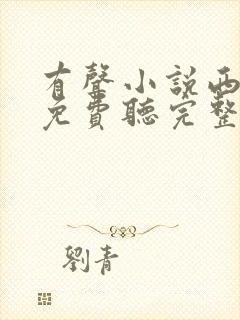 有聲小說西
免費聽完整
劉青